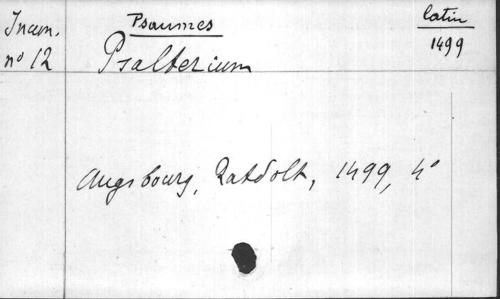 Incun.
nº 12
Psaumes
latin
1499
Psalterium
Augsbourg, Ratdolt, 1499, 4º